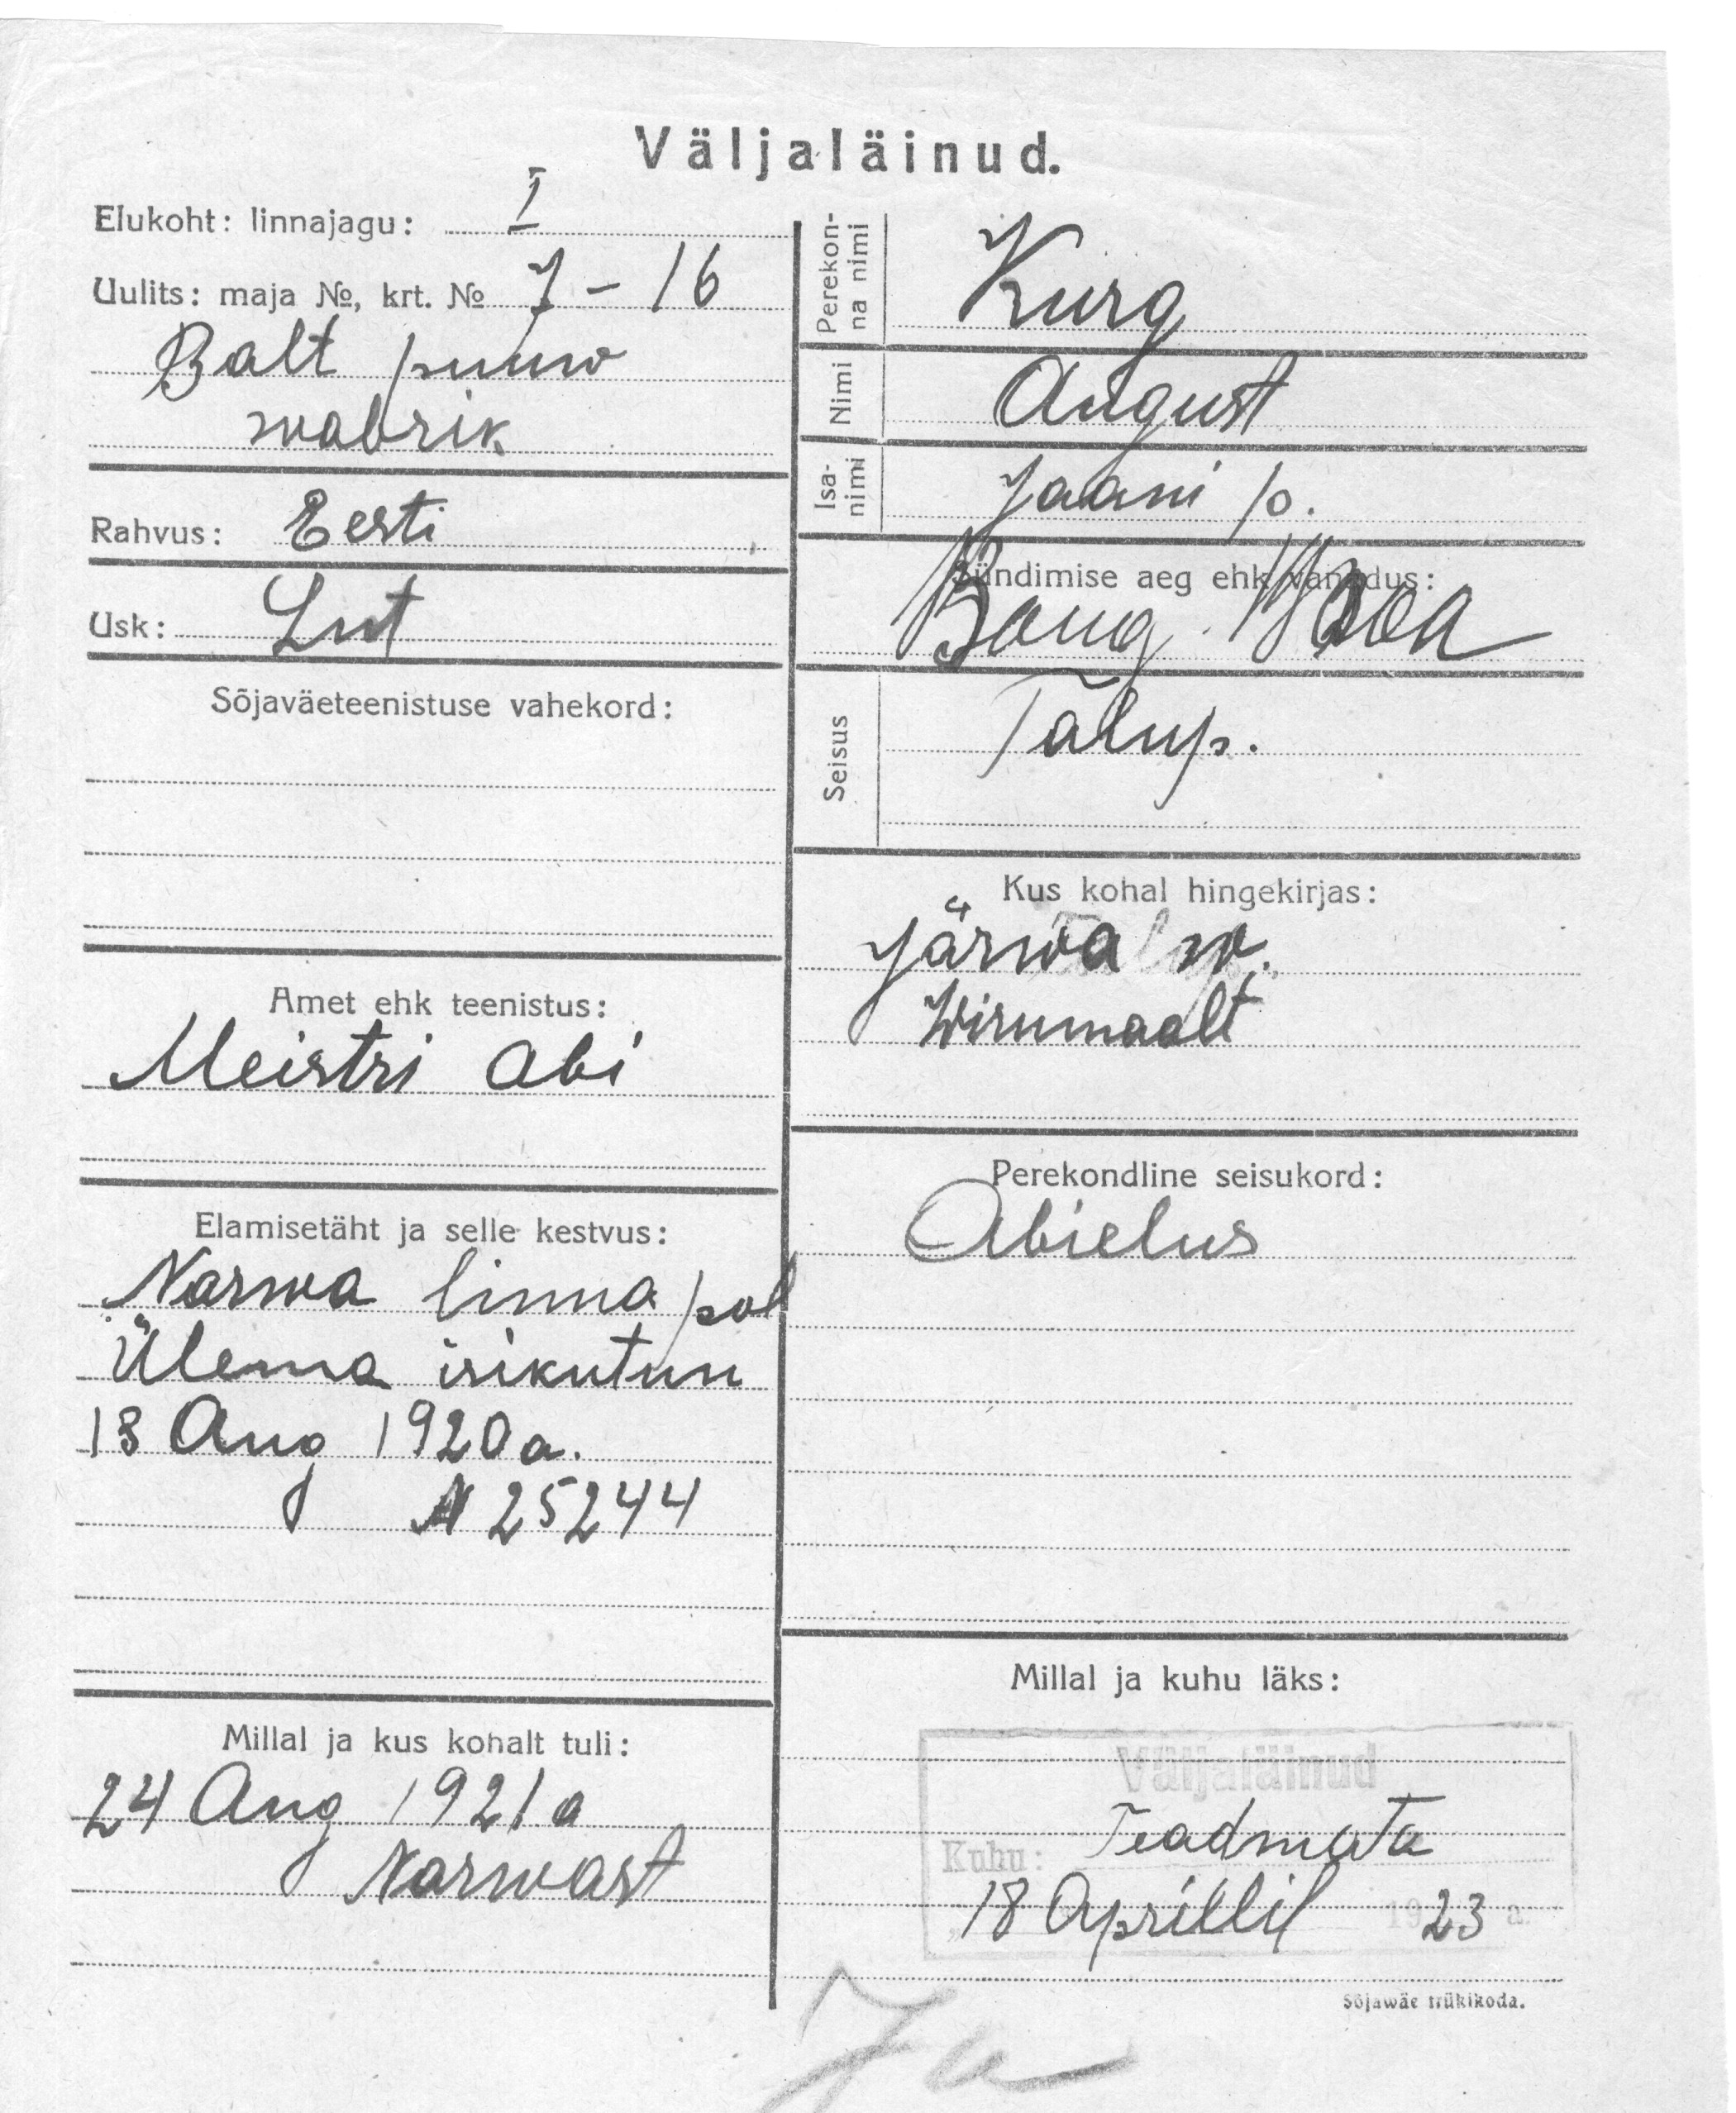 Väljaläinud.
Elukoht: linnajagu: I
Uulits: maja №, krt. № 7 - 16
Balt puuw
wabrik
Rahvus: Eesti
Usk: Lut
Sõjaväeteenistuse vahekord:
Amet ehk teenistus:
Meistri abi
Elamisetäht ja selle kestvus:
Narwa linna pol
Ülema isikutun
18 Aug 1920 a.
N 25244
Millal ja kus kohalt tuli:
24 Aug 1921 a
Narwast
Perekon-
na nimi
Kurg
Nimi
August
Isa-
nimi
Jaani p.
Sündimise aeg ehk vanadus:
Seisus
Talup.
Kus kohal hingekirjas:
Järwa w.
Wirumaalt
Perekondline seisukord:
Abielus
Millal ja kuhu läks:
Väljaläinud
Kuhu: Teadmata
18 Aprillil 1923 a.
Sõjawäe trükikoda.